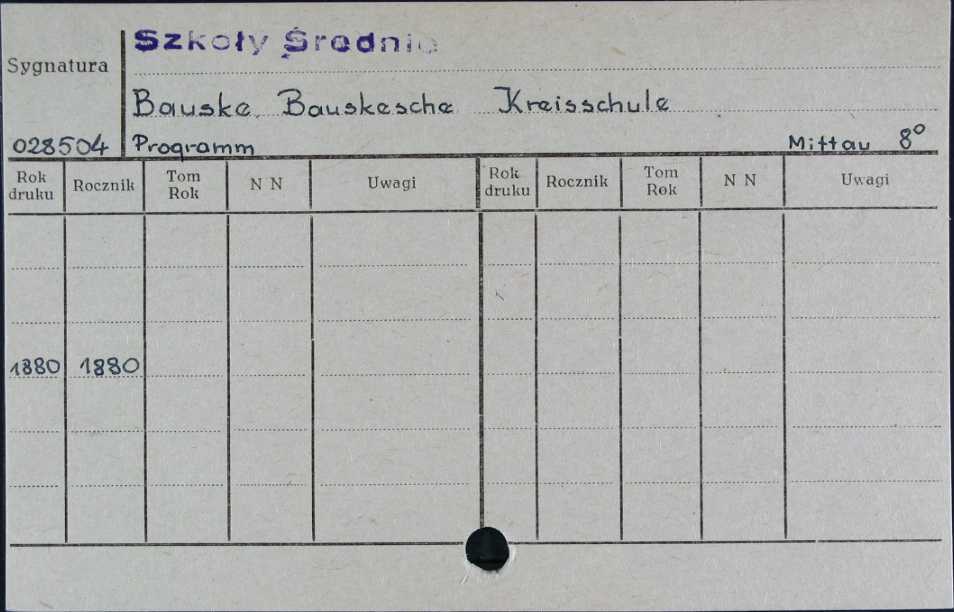 Szkoły Średnie
Sygnatura
Bauske, Bauskesche Kreisschule
028504 Programm Mittau 8°
Rok druku Rocznik Tom Rok N N Uwagi Rok druku Rocznik Tom Rok N N Uwagi
1880 1880